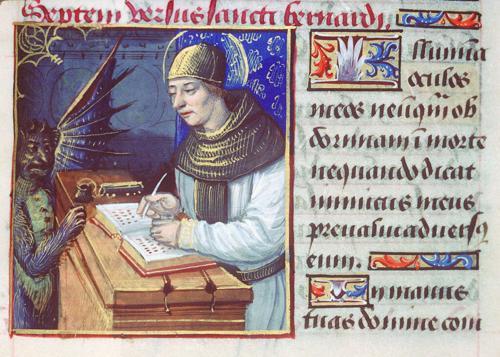 Septem versus sancti bernardi,
Illumina
oculos
meos ne unqm̄ ob
dormiam ī morte
nequando dicat
inimicus meus
preualui aduersꝰ
eum.
In manus
tuas domine com